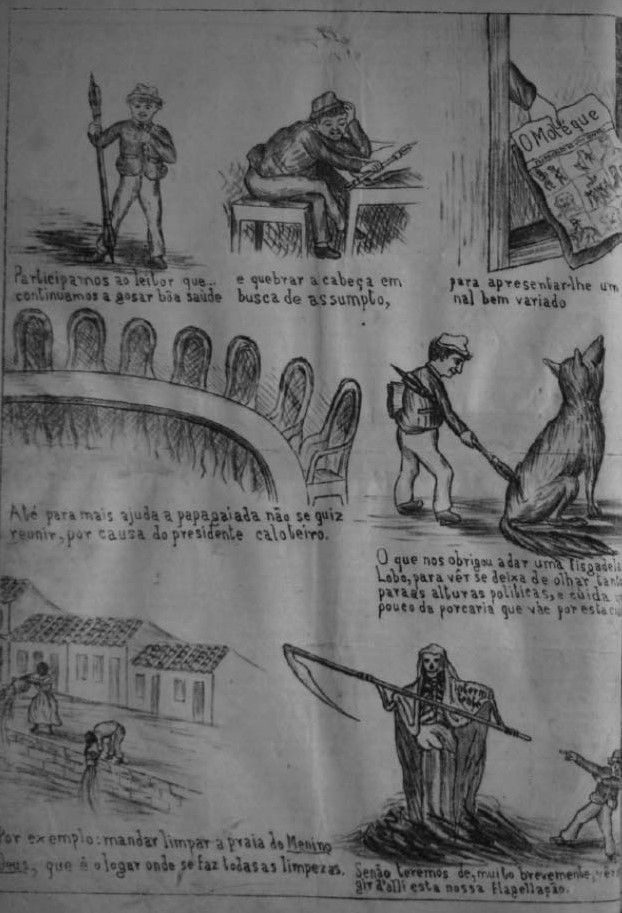 O Moléque
Participamos ao leitor que...
continuamos a gosar bôa saúde
e quebrar a cabeça em
busca de assumpto,
para apresentar-lhe um
nal bem variado
Até para mais ajuda a papagaiada não se quiz
reunir, por causa do presidente caloteiro.
O que nos obrigou a dar uma fisgadela
Lobo, para vêr se deixa de olhar tanto
para as alturas politicas, e cuida
pouco da porcaria que vae por esta
Por exemplo: mandar limpar a praia do Menino
Deus, que é o logar onde se faz todas as limpezas.
Senão teremos de, muito brevemente,
gir d'alli esta nossa flagellação.